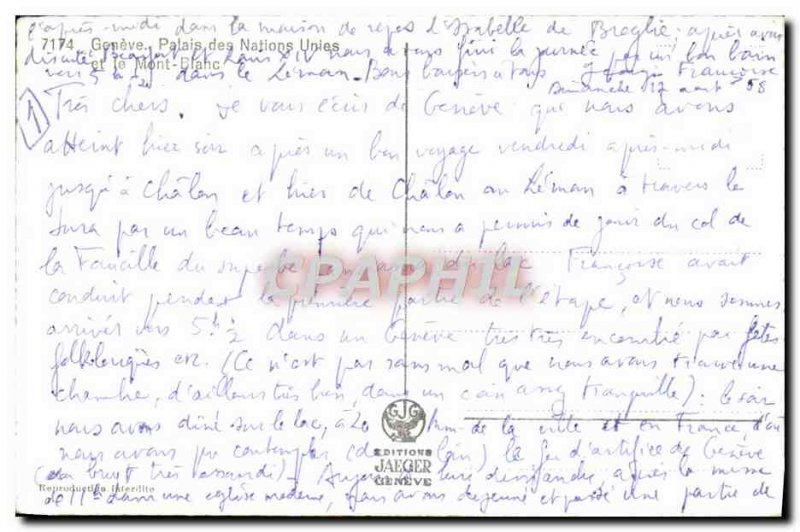 l'après-midi dans la maison de repos d'Isabelle de Broglie: après avoir
7174 Genève. Palais des Nations Unies
et le Mont-Blanc
discuté et Louis XIV nous avons fini la journée par un bon bain
vers 5 dans le Léman - Bons baisers à tous Françoise
Dimanche 17 août 58
1 Très chers. Je vous écris de Genève que nous avons
atteint hier soir après un bon voyage vendredi après-midi
jusqu'à Châlon et hier de Châlon au Léman à travers le
Jura par un beau temps qui nous a permis de jouir du col de
la Faucille du superbe panorama du lac Françoise avait
conduit pendant la première partie de l'étape, et nous sommes
arrivés vers 5h½ dans un Genève très très encombré par fêtes
folkloriques etc. (Ce n'est pas sans mal que nous avons trouvé une
chambre, d'ailleurs très bien, dans un coin assez tranquille). Le soir
nous avons dîné sur le lac, à 20 km de la ville et en France, d'où
nous avons pu contempler (de loin) le feu d'artifice de Genève
(au bruit très assourdi). Aujourd'hui dimanche, après la messe
de 11h dans une église moderne, nous avons déjeuné et passé une partie de
CPAPHIL
GJG
EDITIONS
JAEGER
GENÈVE
Reproduction interdite